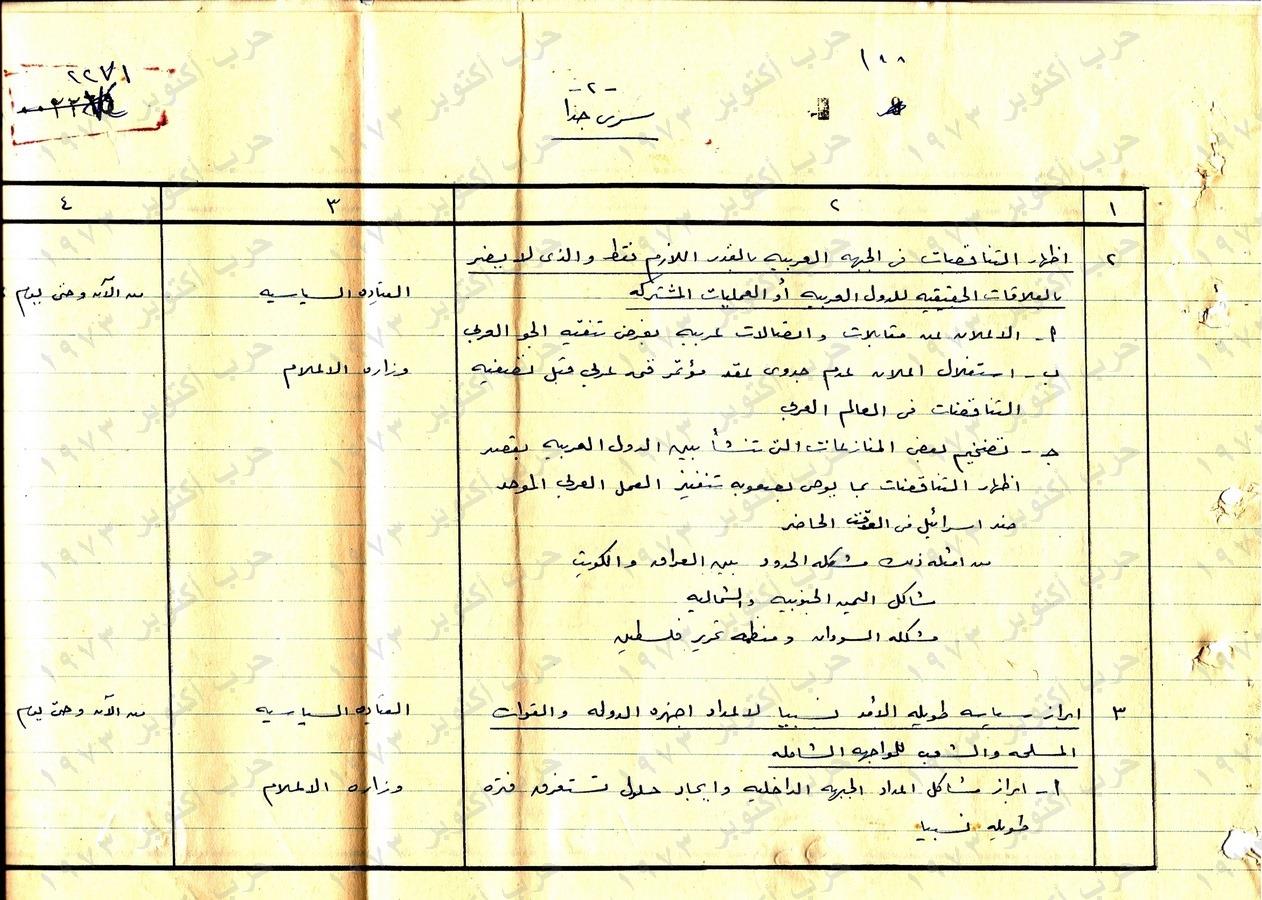 ١٨٨
٢٢٧١
- ٢ -
سرى جدا
١ ٢ ٣ ٤
٢ اظهار التناقضات فى الجبهه العربيه بالقدر اللازم فقط والذى لا يضر
بالعلاقات الحقيقيه للدول العربيه أو العمليات المشتركه
القياده السياسيه
من الآن وحتى يوم
أ - الاعلان عن مقابلات واتصالات عربيه بغرض تنقيه الجو العربى
ب - استغلال اعلان عدم جدوى عقد مؤتمر قمه عربى قبل تصفيه
وزاره الاعلام
التناقضات فى العالم العربى
جـ - تضخيم بعض المنازعات التى تنشأ بين الدول العربيه بقصد
اظهار التناقضات بما يوحى بصعوبه تنفيذ العمل العربى الموحد
ضد اسرائيل فى الوقت الحاضر
من امثله ذلك مشكله الحدود بين العراق والكويت
مشاكل اليمن الجنوبيه والشماليه
مشكله السودان ومنظمه تحرير فلسطين
٣ ابراز سياسه طويله الأمد نسبيا لاعداد اجهزه الدوله والقوات
القياده السياسيه
من الآن وحتى يوم
المسلحه والشعب للمواجهه الشامله
أ - ابراز مشاكل اعداد الجبهه الداخليه وايجاد حلول تستغرق فتره
وزاره الاعلام
طويله نسبيا
حرب أكتوبر ١٩٧٣